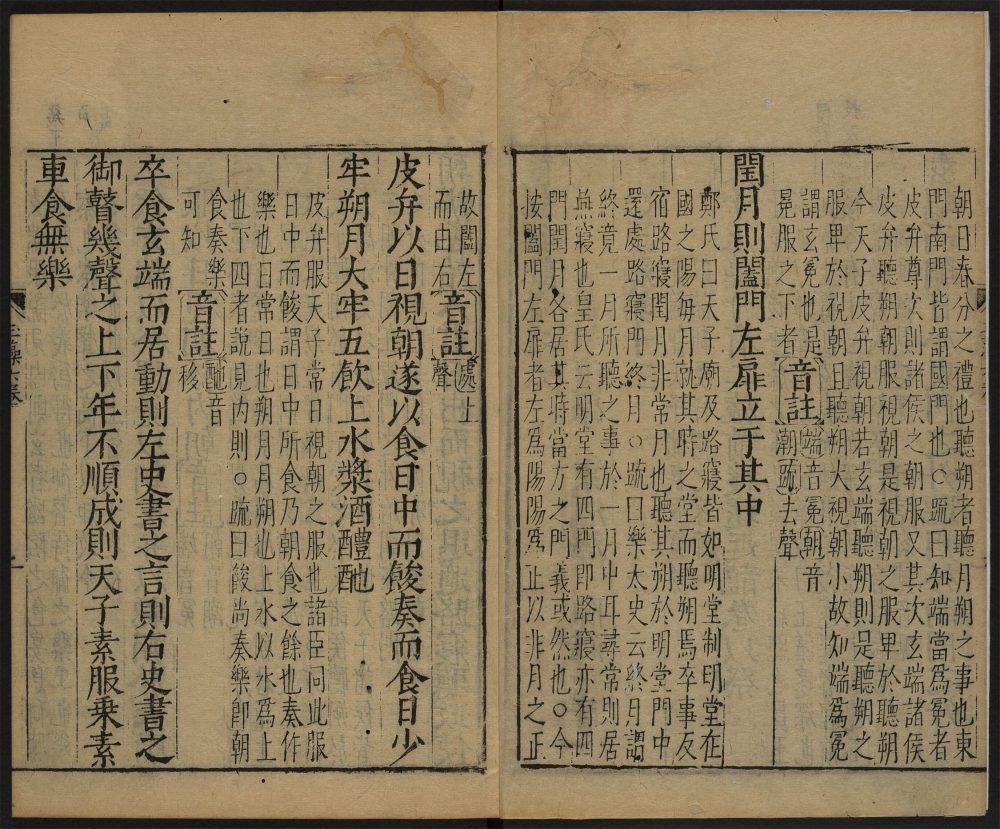 朝日春分之禮也聽朔者聽月朔之事也東
門南門皆謂國門也○疏曰知端當爲冕者
皮弁尊次則諸侯之朝服又其次玄端諸侯
皮弁聽朔朝服視朝是視朝之服卑於聽朔
今天子皮弁視朝若玄端聽朔則是聽朔之
服卑於視朝且聽朔大視朝小故知端爲冕
謂玄冕也是
冕服之下者
音註
端音冕朝音
潮疏去聲
閏月則闔門左扉立于其中
鄭氏曰天子廟及路寢皆如明堂制明堂在
國之陽每月就其時之堂而聽朔焉卒事反
宿路寢閏月非常月也聽其朔於明堂門中
還處路寢門終月○疏曰樂太史云終月謂
終竟一月所聽之事於一月中耳尋常則居
燕寢也皇氏云明堂有四門即路寢亦有四
門閏月各居其時當方之門義或然也○今
按闔門左扉者左爲陽陽爲正以非月之正
故闔左
而由右
音註
處上
聲
皮弁以日視朝遂以食日中而餕奏而食日少
牢朔月大牢五飲上水漿酒醴酏
皮弁服天子常日視朝之服也諸臣同此服
日中而餕謂日中所食乃朝食之餘也奏作
樂也日常日也朔月月朔也上水以水爲上
也下四者說見內則○疏曰餕尚奏樂即朝
食奏樂
可知
音註
酏音
移
卒食玄端而居動則左史書之言則右史書之
御瞽幾聲之上下年不順成則天子素服乗素
車食無樂